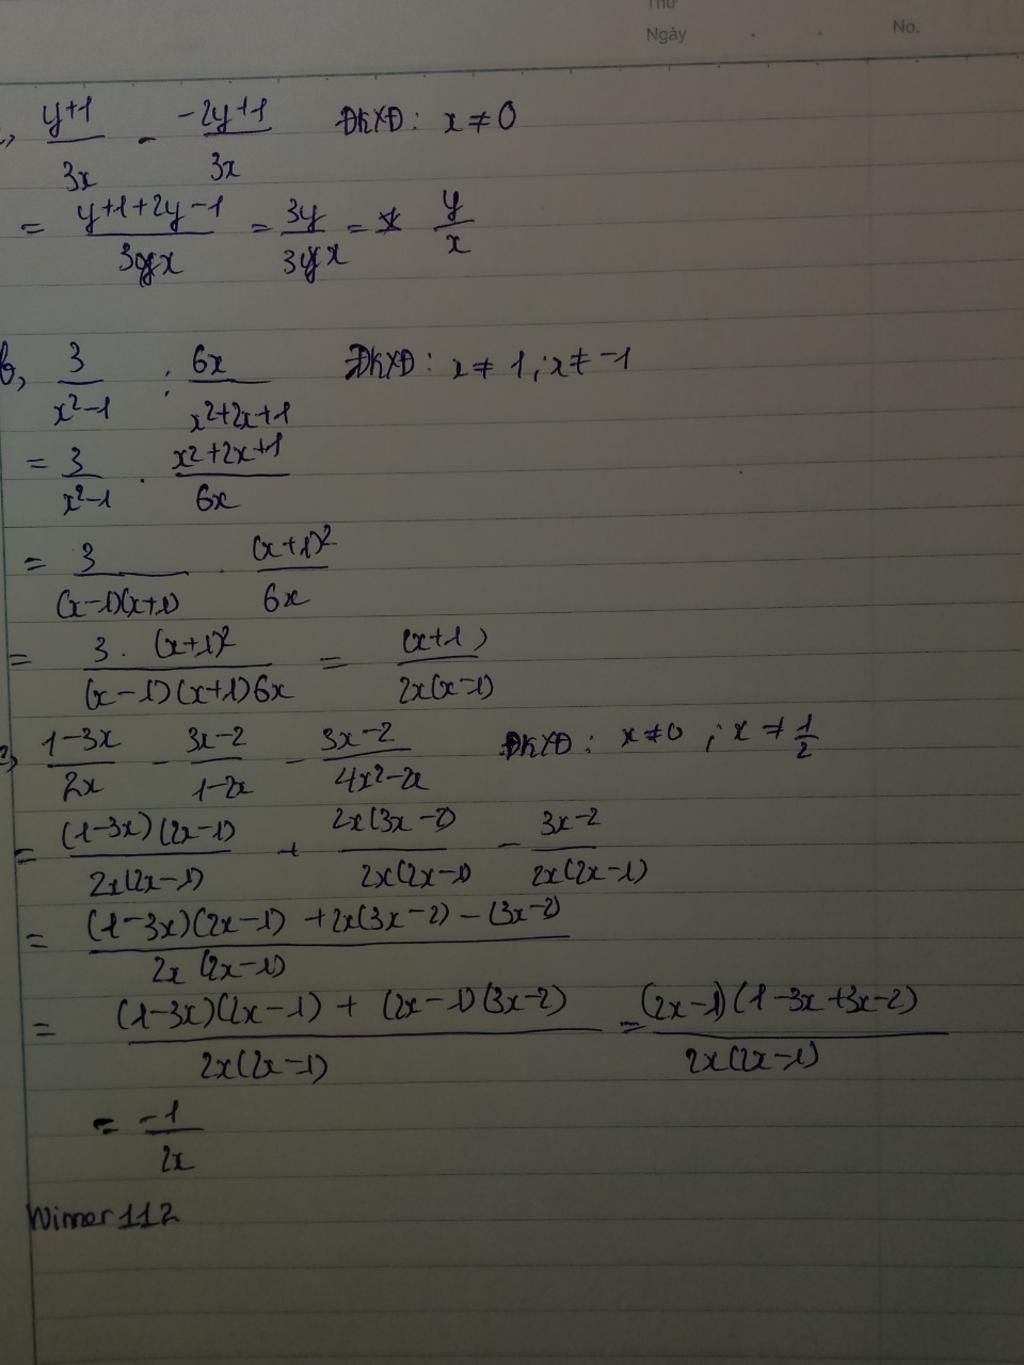 Thứ
Ngày . . No.
a, (y+1)/(3x) - (-2y+1)/(3x) ĐKXĐ: x ≠ 0
= (y+1+2y-1)/(3x) = 3y/(3x) = y/x
b, 3/(x²-1) : 6x/(x²+2x+1) ĐKXĐ: x ≠ 1; x ≠ -1
= 3/(x²-1) . (x²+2x+1)/(6x)
= 3/((x-1)(x+1)) . (x+1)²/(6x)
= (3.(x+1)²)/((x-1)(x+1)6x) = (x+1)/(2x(x-1))
c, (1-3x)/(2x) - (3x-2)/(1-2x) - (3x-2)/(4x²-2x) ĐKXĐ: x ≠ 0; x ≠ 1/2
= ((1-3x)(2x-1))/(2x(2x-1)) + (2x(3x-2))/(2x(2x-1)) - (3x-2)/(2x(2x-1))
= ((1-3x)(2x-1) + 2x(3x-2) - (3x-2))/(2x(2x-1))
= ((1-3x)(2x-1) + (2x-1)(3x-2))/(2x(2x-1)) = ((2x-1)(1-3x+3x-2))/(2x(2x-1))
= -1/(2x)
Winner112